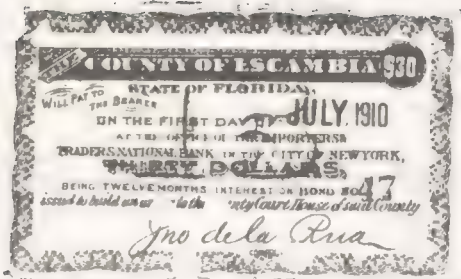 COUNTY OF ESCAMBIA $30
STATE OF FLORIDA,
WILL PAY TO
THE BEARER
ON THE FIRST DAY OF JULY. 1910
AT THE OFFICE OF THE IMPORTERS &
TRADERS NATIONAL BANK IN THE CITY OF NEW YORK,
THIRTY DOLLARS,
BEING TWELVE MONTHS INTEREST ON BOND NO 47
issued to build an to the Court House of said County
Jno de la Rua